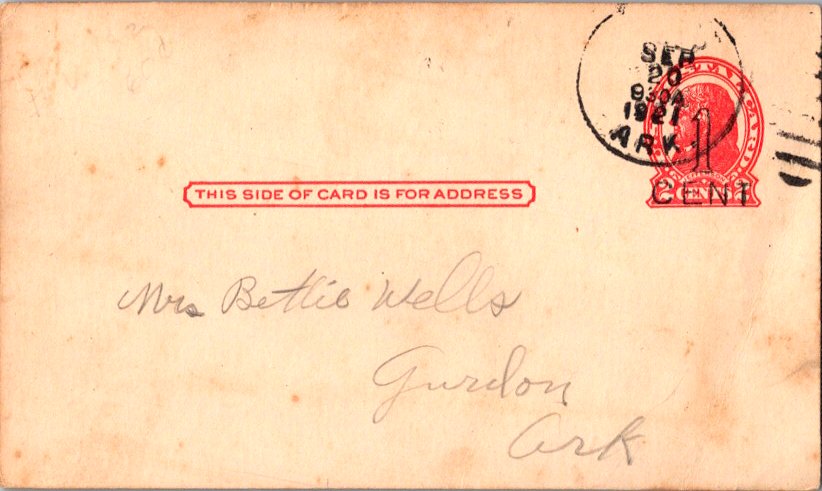 SEP
20
930A
1921
ARK.
1
CENT
THIS SIDE OF CARD IS FOR ADDRESS
Mrs Bettie Wells
Gurdon
Ark